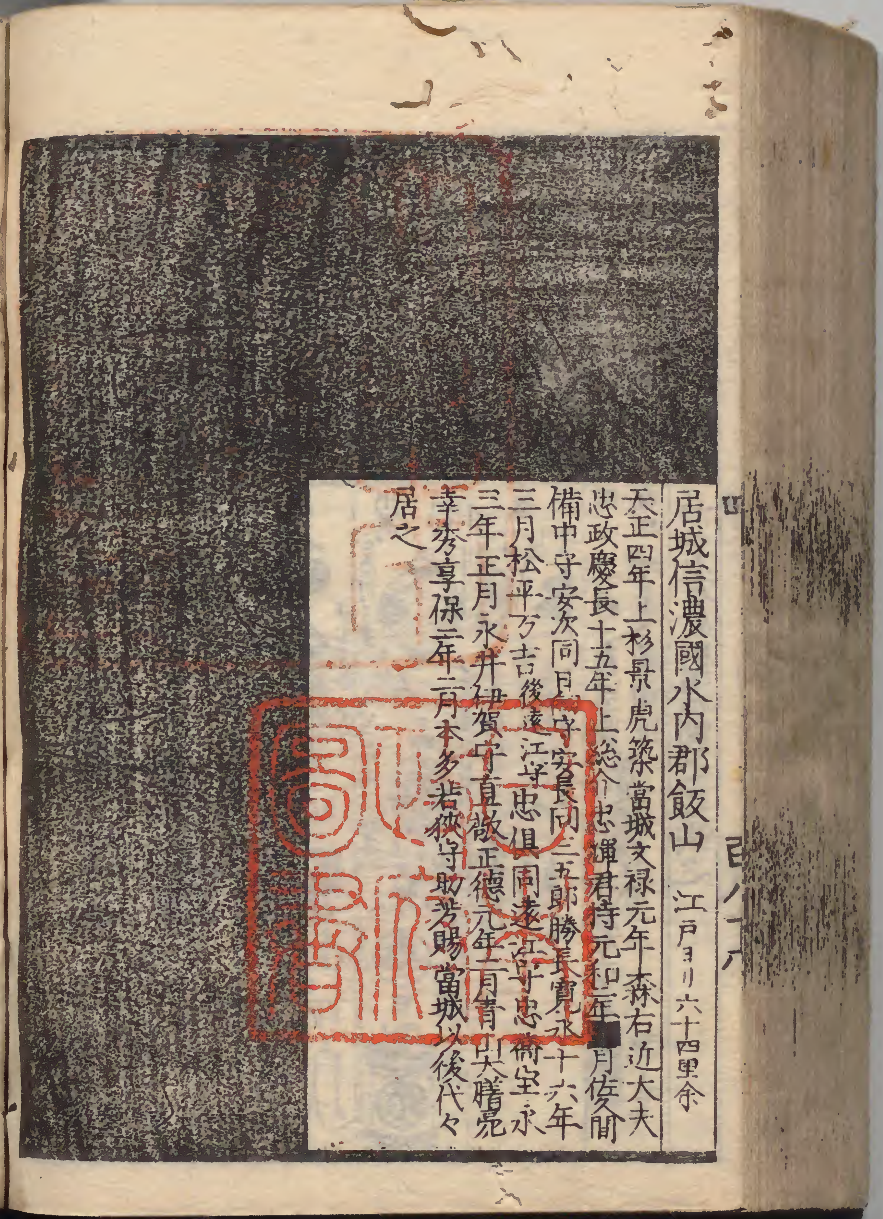 居城信濃國水内郡飯山 江戸ヨリ六十四里余
天正四年上杉景虎築當城文禄元年森右近大夫
忠政慶長十五年上総介忠輝君持元和二年月佐久間
備中守安次同日守安長同三五郎勝長寛永十六年
三月松平万吉後遠江守忠倶同遠江守忠喬宝永
三年正月永井伊賀守直敬正德元年二月青山大膳亮
幸秀享保二年二月本多若狭守助芳賜當城以後代々
居之